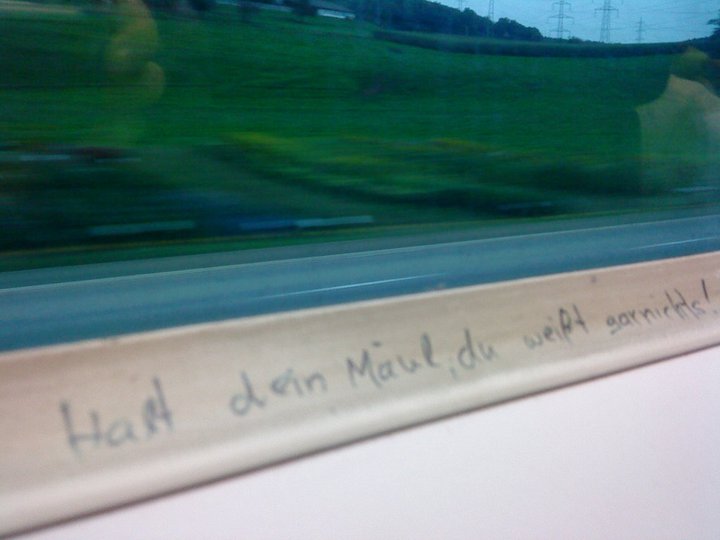 Halt dein Maul, du weißt garnichts!